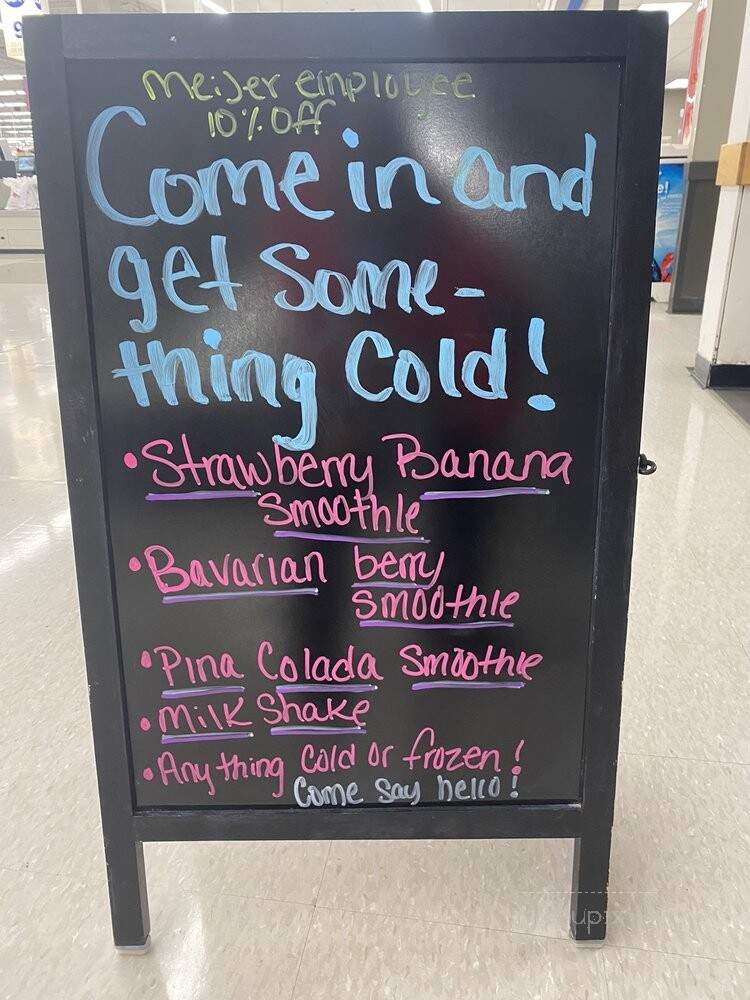 Meijer employee
10% off
Come in and
get Some-
thing Cold!
• Strawberry Banana
Smoothie
• Bavarian berry
smoothie
• Pina Colada Smoothie
• Milk Shake
• Anything Cold or frozen!
Come say hello!